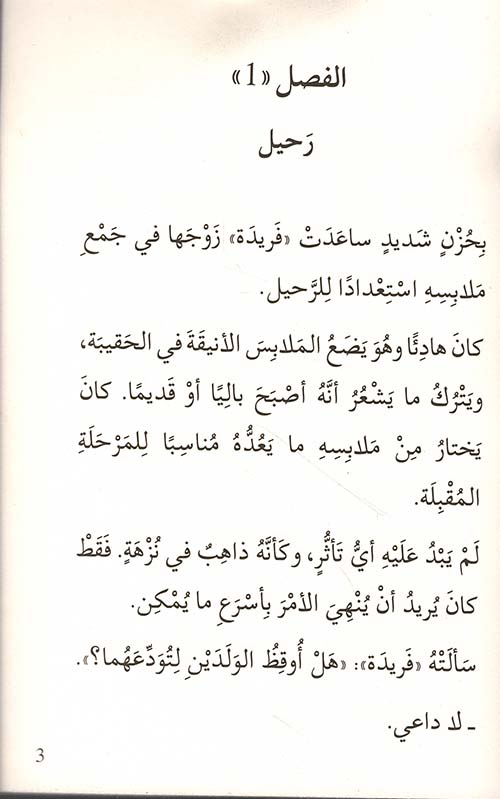 الفصل «1»
رَحيل
بِحُزْنٍ شَديدٍ ساعَدَتْ «فَريدَة» زَوْجَها في جَمْعِ
مَلابِسِهِ اسْتِعْدادًا لِلرَّحيل.
كانَ هادِئًا وهُوَ يَضَعُ المَلابِسَ الأنيقَةَ في الحَقيبَة،
ويَتْرُكُ ما يَشْعُرُ أنَّهُ أصْبَحَ بالِيًا أوْ قَديمًا. كانَ
يَختارُ مِنْ مَلابِسِهِ ما يَعُدُّهُ مُناسِبًا لِلمَرْحَلَةِ
المُقْبِلَة.
لَمْ يَبْدُ عَلَيْهِ أيُّ تَأثُّرٍ، وكَأنَّهُ ذاهِبٌ في نُزْهَةٍ. فَقَطْ
كانَ يُريدُ أنْ يُنْهِيَ الأمْرَ بِأسْرَعِ ما يُمْكِن.
سَألَتْهُ «فَريدَة»: «هَلْ أُوقِظُ الوَلَدَيْنِ لِتُوَدِّعَهُما؟».
ـ لا داعي.
3